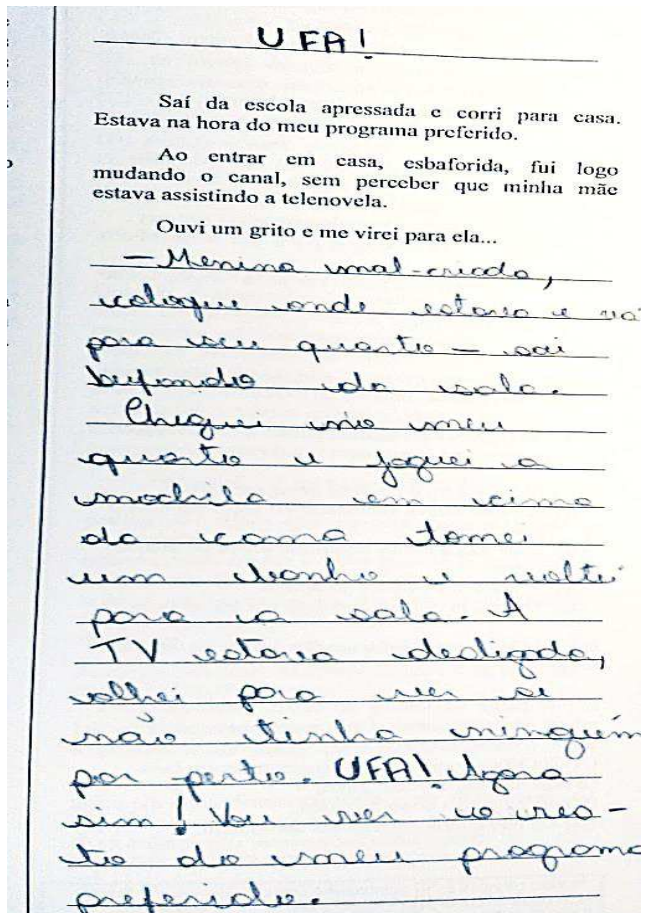 UFA!
Saí da escola apressada e corri para casa.
Estava na hora do meu programa preferido.
Ao entrar em casa, esbaforida, fui logo
mudando o canal, sem perceber que minha mãe
estava assistindo a telenovela.
Ouvi um grito e me virei para ela...
— Menina mal-criada,
coloque onde estava e vá
para seu quarto — sai
bufando da sala.
Cheguei no meu
quarto e joguei a
mochila em cima
da cama tomei
um banho e voltei
para a sala. A
TV estava desligada,
olhei para ver se
não tinha ninguém
por perto. UFA! Agora
sim! Vou ver o res-
to do meu programa
preferido.